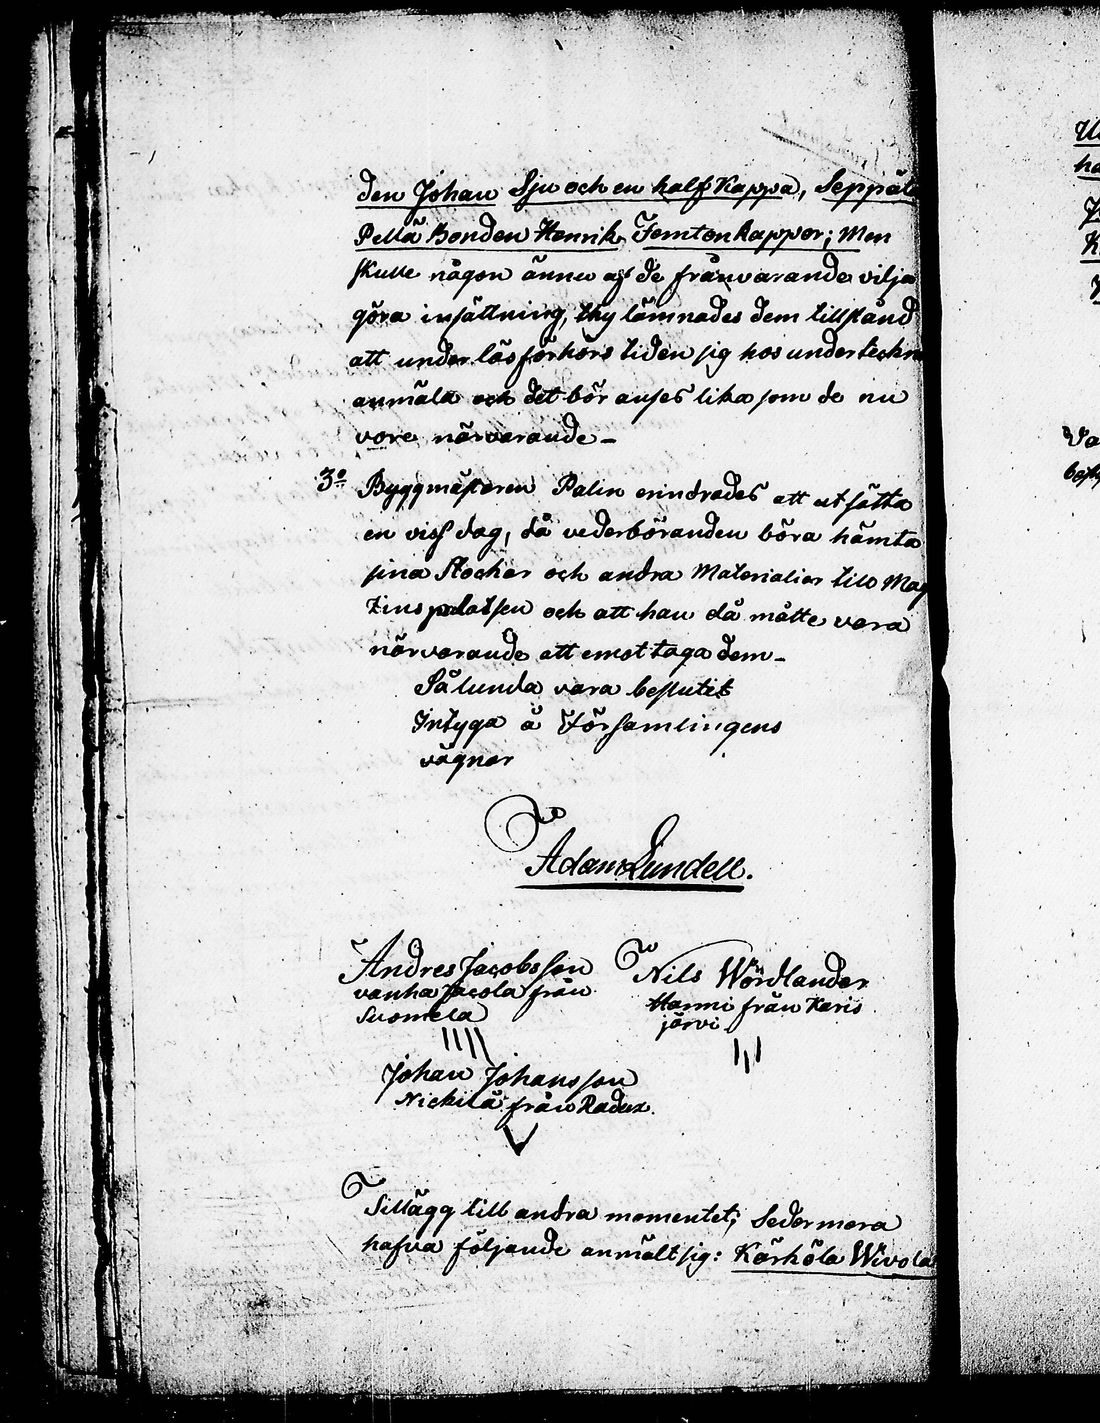 den Johan Sju och en half Kappa, Seppäl
Pellä Bonden Henrik Femton kappor; Men
skulle någon ännu af de frånvarande vilja
göra insättning, thy lämnades dem tillstånd
att under läsförhörs tiden sig hos underteckna
anmäla och det bör anses lika som de nu
vore närvarande –
3º Byggmästaren Palin erindrades att utsätta
en viss dag, då vederböranden böra hämta
sina Stockar och andra Materialier till Mag
zins platsen och att han då måtte vara
närvarande att emottaga dem –
Sålunda vara beslutit
Intyga å Församlingens
vägnar
Adam Lundell.
Andres Jacobsson
vanha Jacola från
Suomela
Nils
Hanni från Karis
järvi
Johan Johansson
Nickilä från
Tillägg till andra momentet; Sedermera
hafva följande anmält sig: Kärkölä Wivola
Va